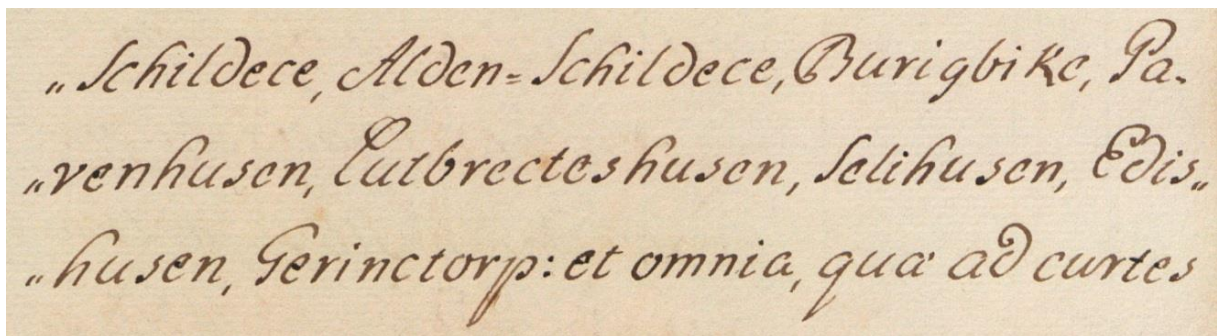 „Schildece, Alden=Schildece, Burigbike, Pa-
„venhusen, Lutbrecteshusen, Selihusen, Edis„
„husen, Gerinctorp: et omnia, quæ ad curtes